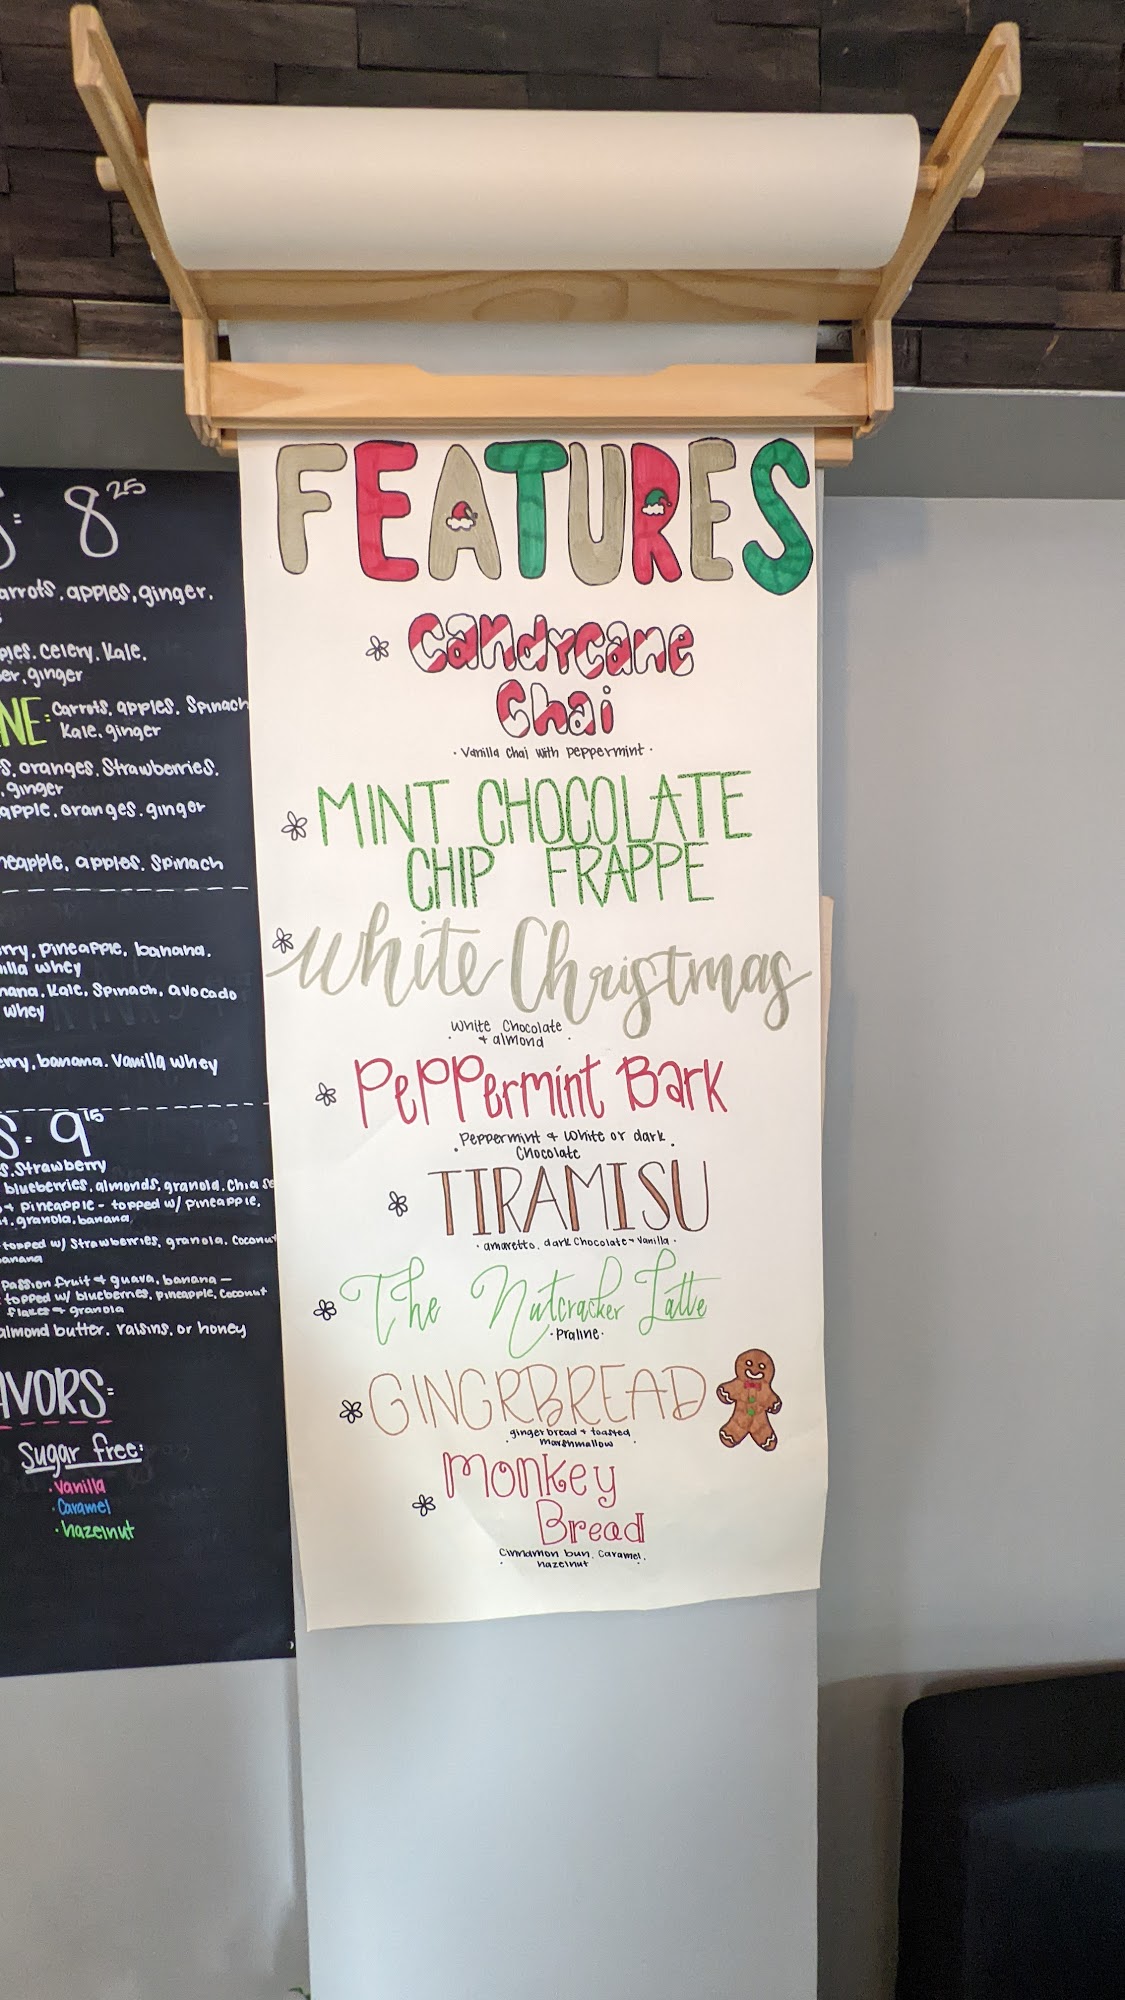 8 25
carrots, apples, ginger,
celery, kale,
ginger
Carrots, apples, Spinach
Kale, ginger
oranges, Strawberries,
ginger
apple, oranges, ginger
apples, Spinach
pineapple, banana,
whey
Kale, Spinach, avocado
whey
banana, Vanilla whey
9 15
Strawberry
blueberries, almonds, granola, Chia
+ pineapple - topped w/ pineapple,
granola, banana
topped w/ Strawberries, granola, Coconut
Passion fruit + guava, banana -
topped w/ blueberries, pineapple, Coconut
flakes + granola
almond butter, raisins, or honey
Sugar free:
· Vanilla
· Caramel
· hazelnut
FEATURES
Candycane
Chai
· Vanilla Chai with peppermint ·
MINT CHOCOLATE
CHIP FRAPPE
White Christmas
White Chocolate
· + almond ·
Peppermint Bark
· Peppermint + White or dark ·
Chocolate
TIRAMISU
· amaretto, dark Chocolate + Vanilla ·
The Nutcracker Latte
· Praline ·
GINGRBREAD
gingerbread + toasted
· marshmallow ·
Monkey
Bread
Cinnamon bun, Caramel,
· hazelnut ·